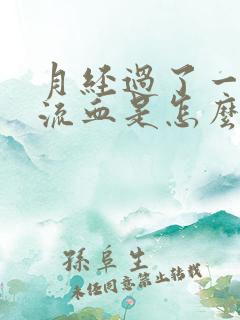 月经過了一
流血是怎麼
孫阜生
未經同意禁止轉載